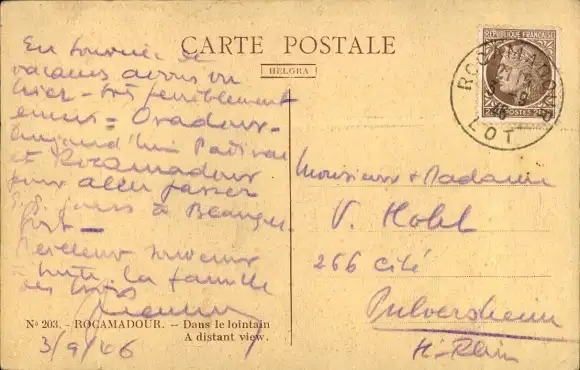 CARTE POSTALE
HELGRA
RÉPUBLIQUE FRANÇAISE
POSTES
ROCAMADOUR
21
3 9
46
LOT
En tournée de
vacances avons vu
hier - très péniblement
émus = Oradour -
aujourd'hui Padirac
et Rocamadour
pour aller passer
jours à
fort -
Meilleur souvenir
à toute la famille
les trois
Monsieur & Madame
V. Hohl
266 Cité
Pulversheim
Ht-Rhin
Nº 203. - ROCAMADOUR. - Dans le lointain
A distant view.
3/9/46